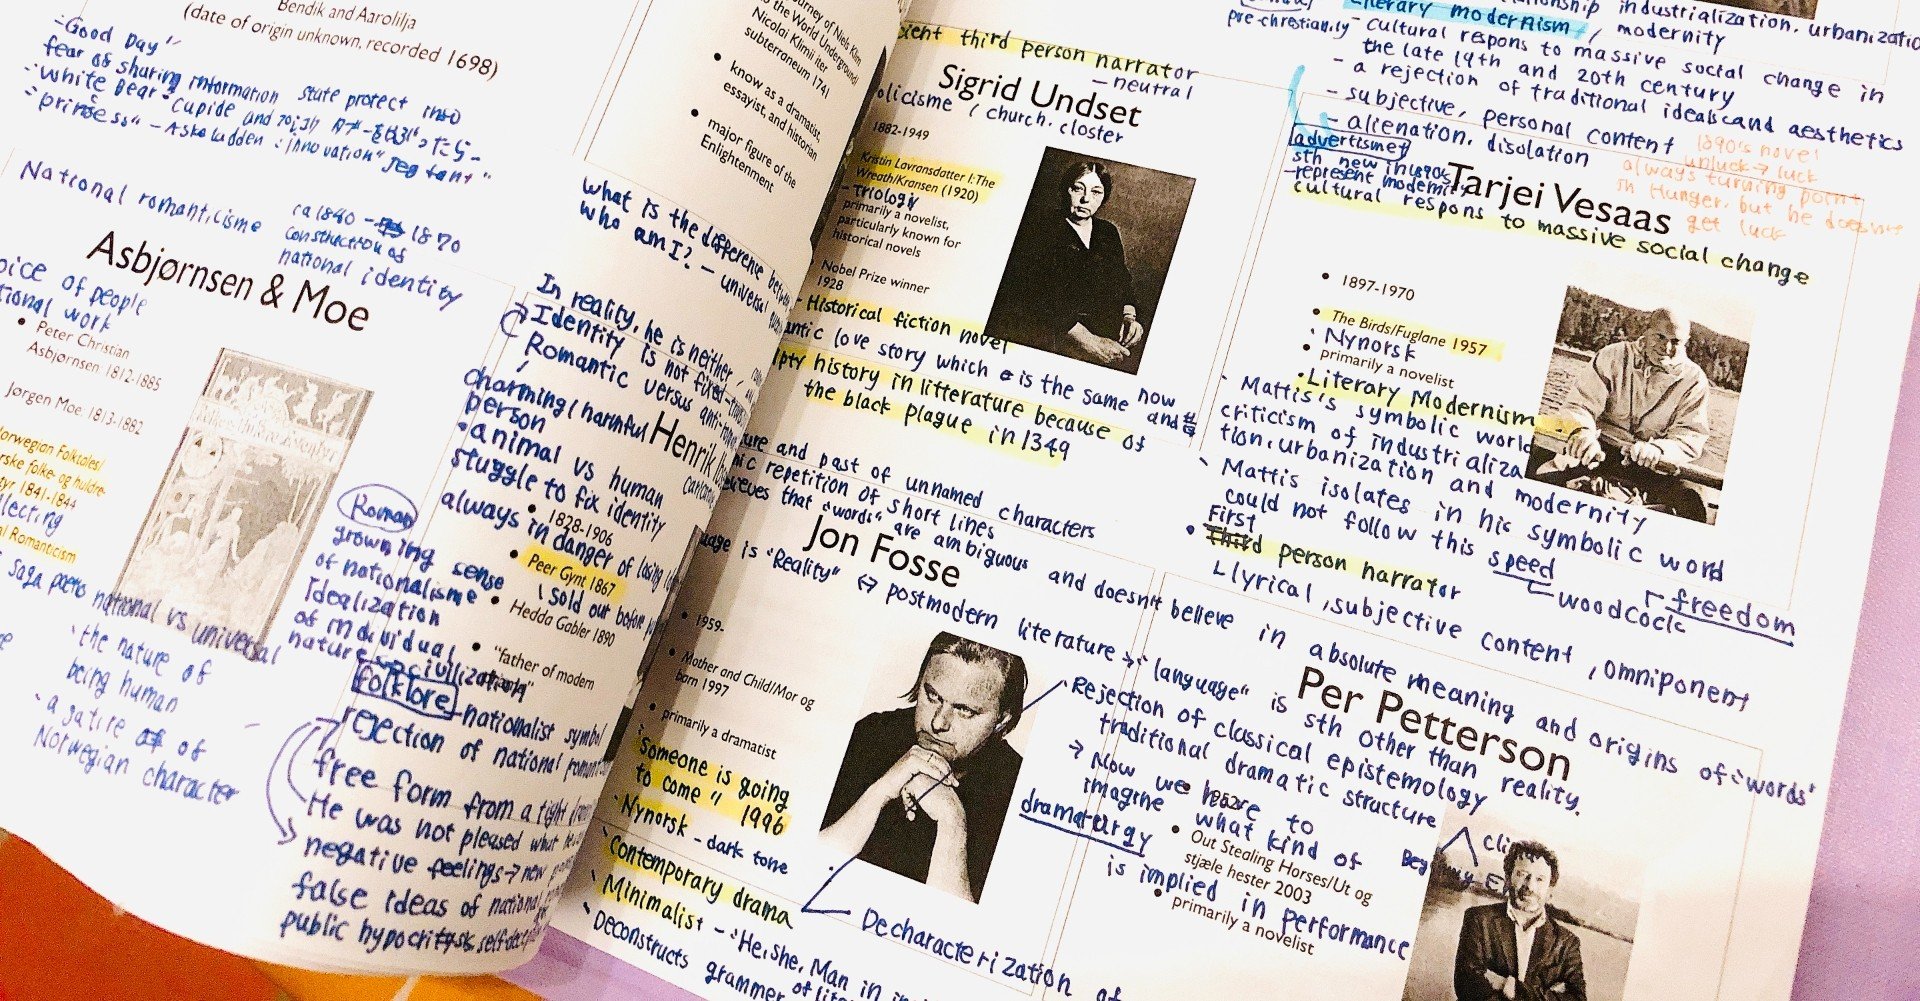 Bendik and Aarolilja
(date of origin unknown, recorded 1698)
-"Good Day"
fear of sharing information state protect into
-"White Bear" - cupide and
-"princess" - Askeladden : innovation "Jeg fant"
National romanticisme
ca 1840 - 1870
construction of
national identity
Asbjørnsen & Moe
oice of people
tional work
• Peter Christian
Asbjørnsen 1812-1885
Jørgen Moe 1813-1882
orwegian Folktales/
rske folke- og huldre-
tyr 1841-1844
llecting
al Romanticism
saga poems national vs universal
the nature of
being human
a satire of
Norwegian character
Roman
growning sense
of nationalisme
Idealization
of individual
nature vs civilization
folklore - nationalist symbol
rejection of national romantic
free form from a tight
He was not pleased what he
negative feelings → new
false ideas of national
public hypocrit self-dec
what is the difference between
who am I? - universal
In reality, he is neither,
→ Identity is not fixed
Romantic versus anti-
charming / harmful
person
Henrik
• animal vs human
stuggle to fix identity
• 1828-1906
always in danger of losing
• Peer Gynt 1867
sold out before
• Hedda Gabler 1890
• "father of modern
ourney of Niels Klim
to the World Underground/
Nicolai Klimii iter
subterraneum 1741
• know as a dramatist,
essayist, and historian
• major figure of the
Enlightenment
cient third person narrator
- neutral
Sigrid Undset
olicisme / church. closter
1882-1949
Kristin Lavransdatter I: The
Wreath/Kransen (1920)
- Triologiy
primarily a novelist,
particularly known for
historical novels
Nobel Prize winner
1928
- Historical fiction novel
antic love story which is the same now
and
pty history in litterature because of
the black plague in 1349
ure and past of unnamed characters
ic repetition of short lines
believes that "words" are ambiguous and doesn't believe in absolute meaning and origins of "words"
Jon Fosse
uage is "Reality" ↔ postmodern literature → "language" is sth other than reality.
• 1959-
• Mother and Child/Mor og
barn 1997
• primarily a dramatist
"Someone is going
to come" 1996
Nynorsk - dark tone
Contemporary drama
Minimalist - "He, She, Man in
Deconstructs grammer of
Decharacterization of
Rejection of classical epistemology
traditional dramatic structure
→ Now we have to
imagine what kind of
dramaturgy
is implied in performance
Literary modernism / modernity
relationship industrialization. urbanizatio
pre-christianity - cultural respons to massive social change in
the late 19th and 20th century
- a rejection of traditional ideals and aesthetics
- subjective, personal content
- alienation. disolation
advertismet
sth new in 1890s
- represent modernity
cultural respons to massive social change
1890's novel
unluck → luck
always turning point
in Hunger. but he doesn't
get luck
Tarjei Vesaas
• 1897-1970
• The Birds/Fuglane 1957
Nynorsk
• primarily a novelist
• Literary Modernism
Mattis's symbolic world
criticism of industrializa
tion. urbanization and modernity
Mattis isolates in his symbolic word
could not follow this speed
woodcock
freedom
• First person narrator
Llyrical, subjective content, omniponent
Per Petterson
• 1952-
• Out Stealing Horses/Ut og
stjæle hester 2003
• primarily a novelist